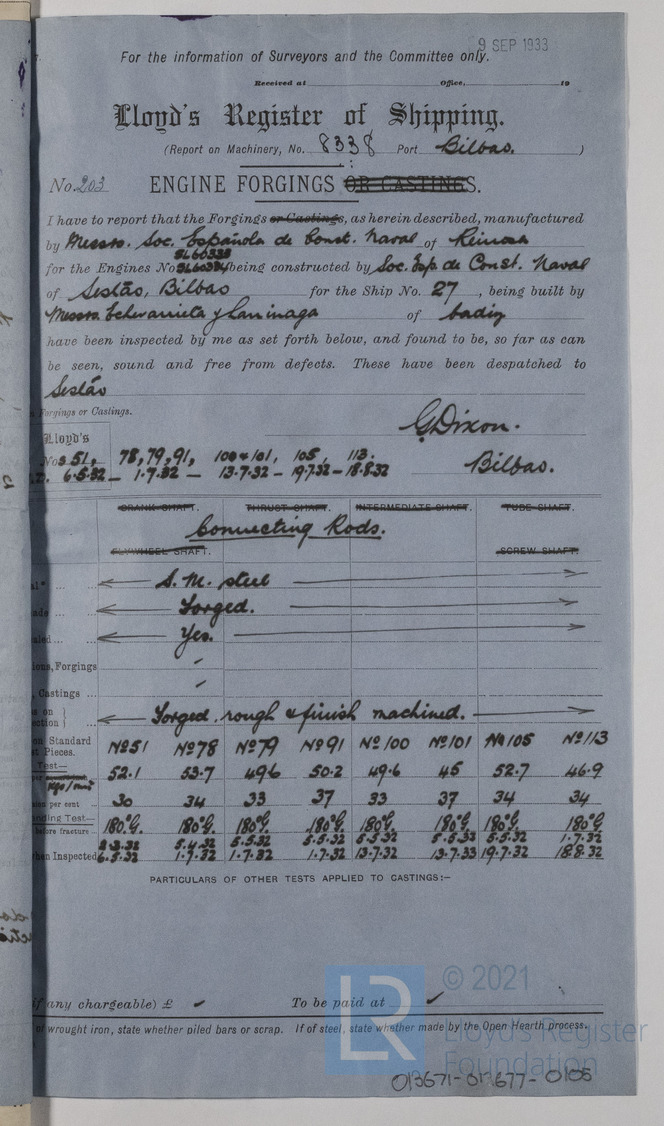 9 SEP 1933
For the information of Surveyors and the Committee only.
Received at Office, 19
Lloyd's Register of Shipping.
(Report on Machinery, No. 8338 Port Bilbao.)
No. 203 ENGINE FORGINGS OR CASTINGS.
I have to report that the Forgings or Castings, as herein described, manufactured
by Messrs. Soc. Española de Const. Naval of Reinosa
SL60333
for the Engines No SL60334 being constructed by Soc. Esp. de Const. Naval
of Sestao, Bilbao for the Ship No. 27, being built by
Messrs Echevarrieta y Larrinaga of Cadiz
have been inspected by me as set forth below, and found to be, so far as can
be seen, sound and free from defects. These have been despatched to
Sestao
Forgings or Castings.
G Dixon.
Lloyd's
Nos 51, 78, 79, 91, 100 & 101, 105, 113.
6.5.32 — 1.7.32 — 13.7.32 — 19.7.32 — 18.8.32
Bilbao.
CRANK SHAFT. THRUST SHAFT. INTERMEDIATE SHAFT. TUBE SHAFT.
Connecting Rods.
FLYWHEEL SHAFT. SCREW SHAFT.
S. M. steel
Forged.
Yes.
Forgings
Castings
Forged, rough & finish machined.
on Standard Pieces. No 51 No 78 No 79 No 91 No 100 No 101 No 105 No 113
Test—
Kgs/mm² 52.1 53.7 49.6 50.2 49.6 45 52.7 46.9
per cent 30 34 33 37 33 37 34 34
Test— 180°G. 180°G. 180°G. 180°G. 180°G. 180°G. 180°G. 180°G.
before fracture 5.4.32 5.5.32 5.5.32 5.5.32 5.5.33 5.5.32 1.7.32
Inspected 6.5.32 1.7.32 1.7.32 1.7.32 13.7.32 13.7.33 19.7.32 18.8.32
PARTICULARS OF OTHER TESTS APPLIED TO CASTINGS:—
if any chargeable) £ To be paid at
wrought iron, state whether piled bars or scrap. If of steel, state whether made by the Open Hearth process.
LR
© 2021
Lloyd's Register
Foundation
013671-013677-0105